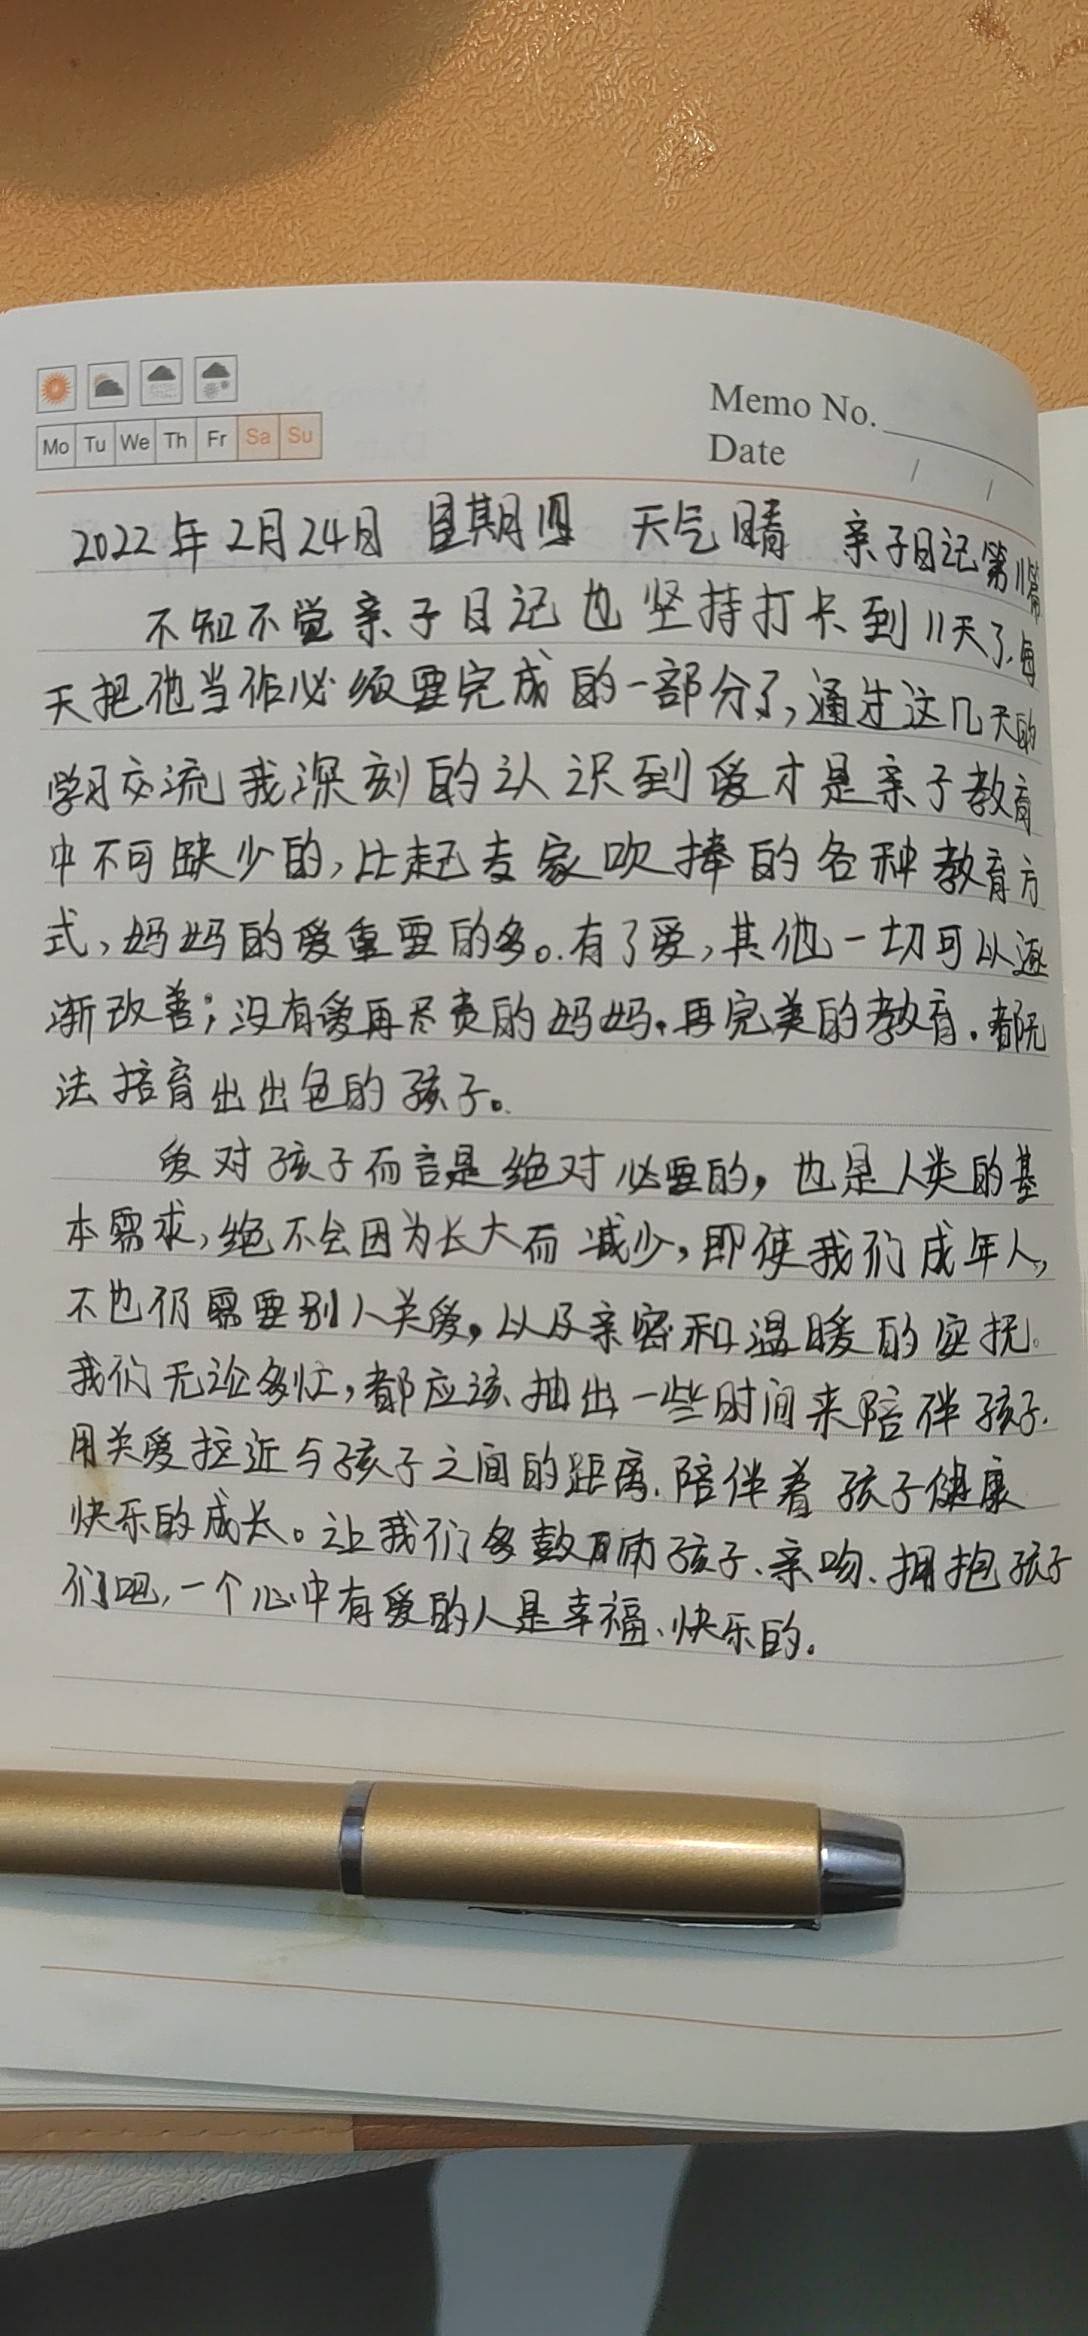 Mo Tu We Th Fr Sa Su
Memo No.
Date / /
2022年2月24日 星期四 天气晴 亲子日记第11篇
不知不觉亲子日记也坚持打卡到11天了,每
天把他当作必须要完成的一部分了,通过这几天的
学习交流我深刻的认识到爱才是亲子教育
中不可缺少的,比起专家吹捧的各种教育方
式,妈妈的爱重要的多。有了爱,其他一切可以逐
渐改善;没有爱再尽责的妈妈,再完美的教育,都无
法培育出出色的孩子。
爱对孩子而言是绝对必要的,也是人类的基
本需求,绝不会因为长大而减少,即使我们成年人,
不也仍需要别人关爱,以及亲密和温暖的安抚。
我们无论多忙,都应该抽出一些时间来陪伴孩子,
用关爱拉近与孩子之间的距离,陪伴着孩子健康
快乐的成长。让我们多鼓励孩子、亲吻、拥抱孩子
们吧,一个心中有爱的人是幸福、快乐的。